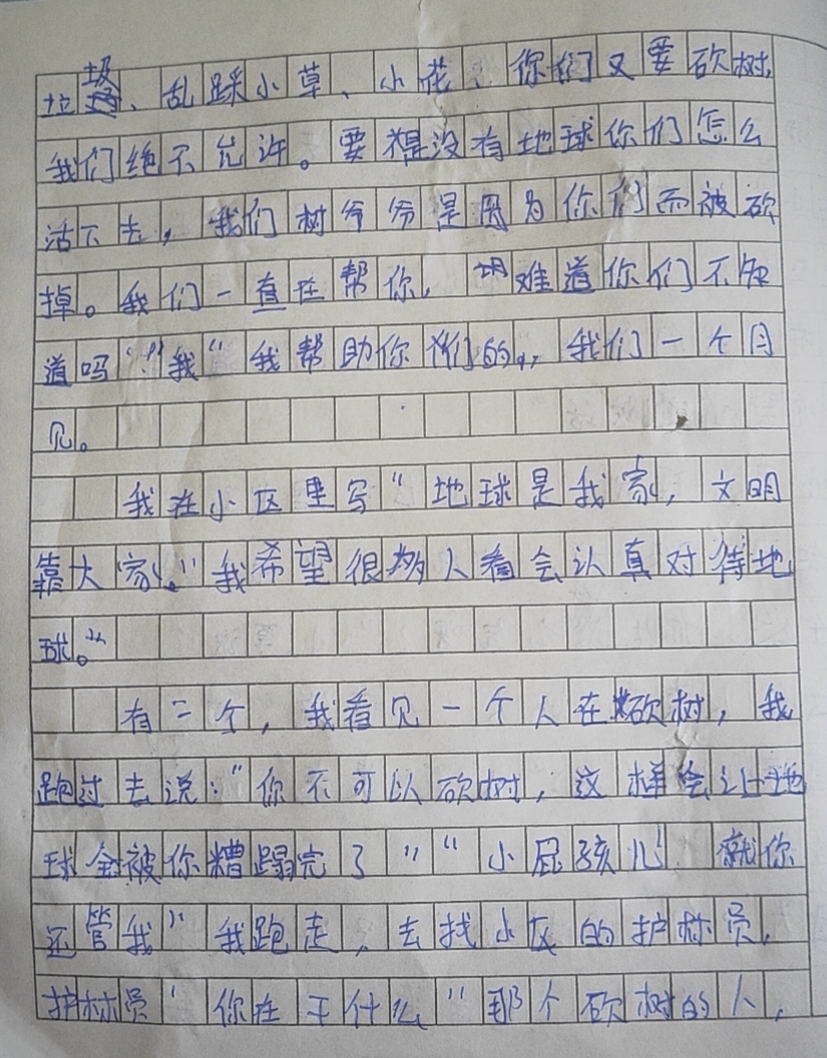 垃圾、乱踩小草、小花、你们又要砍树,
我们绝不允许。要是没有地球你们怎么
活下去，我们树爷爷是因为你们而被砍
掉。我们一直在帮你，难道你们不知
道吗"!"我"我帮助你们的,，我们一个月
见。
我在小区里写"地球是我家，文明
靠大家。"我希望很多人看会认真对待地
球。"
有二个，我看见一个人在砍树，我
跑过去说："你不可以砍树，这样会让地
球全被你糟蹋完了""小屁孩儿 就你
还管我"我跑走，去找小区的护林员，
护林员"你在干什么"那个砍树的人，